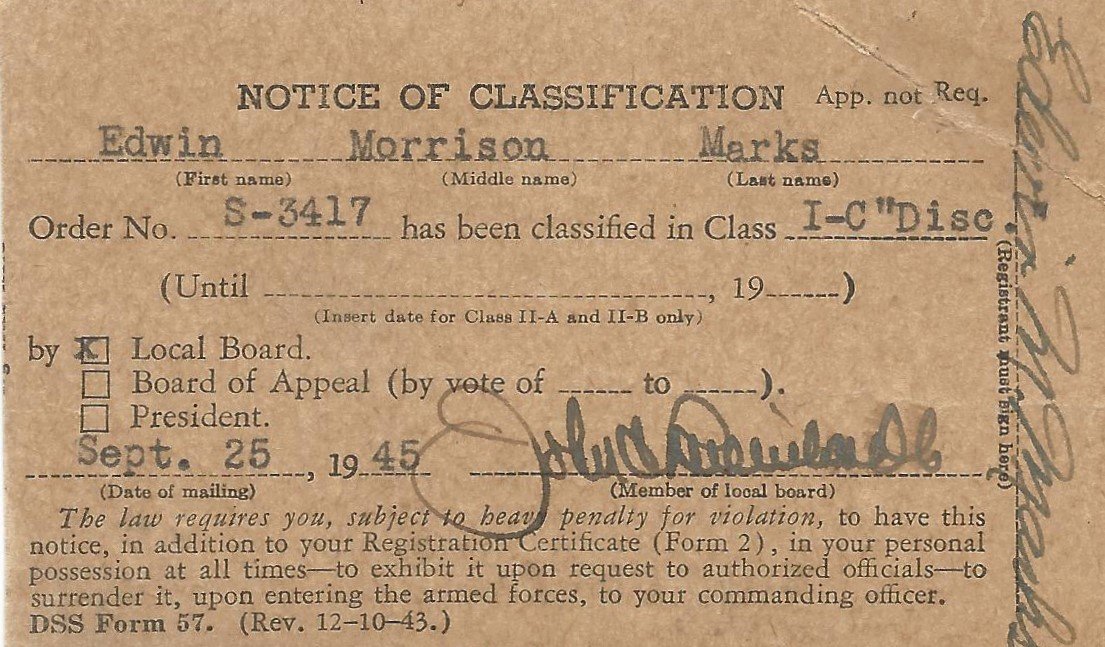 NOTICE OF CLASSIFICATION App. not Req.
Edwin Morrison Marks
(First name) (Middle name) (Last name)
Order No. S-3417 has been classified in Class I-C "Disc.
(Until , 19 )
(Insert date for Class II-A and II-B only)
by X Local Board.
Board of Appeal (by vote of to ).
President.
Sept. 25, 1945
(Date of mailing) (Member of local board)
The law requires you, subject to heavy penalty for violation, to have this
notice, in addition to your Registration Certificate (Form 2), in your personal
possession at all times—to exhibit it upon request to authorized officials—to
surrender it, upon entering the armed forces, to your commanding officer.
DSS Form 57. (Rev. 12-10-43.)
(Registrant must sign here)
Edwin M. Marks